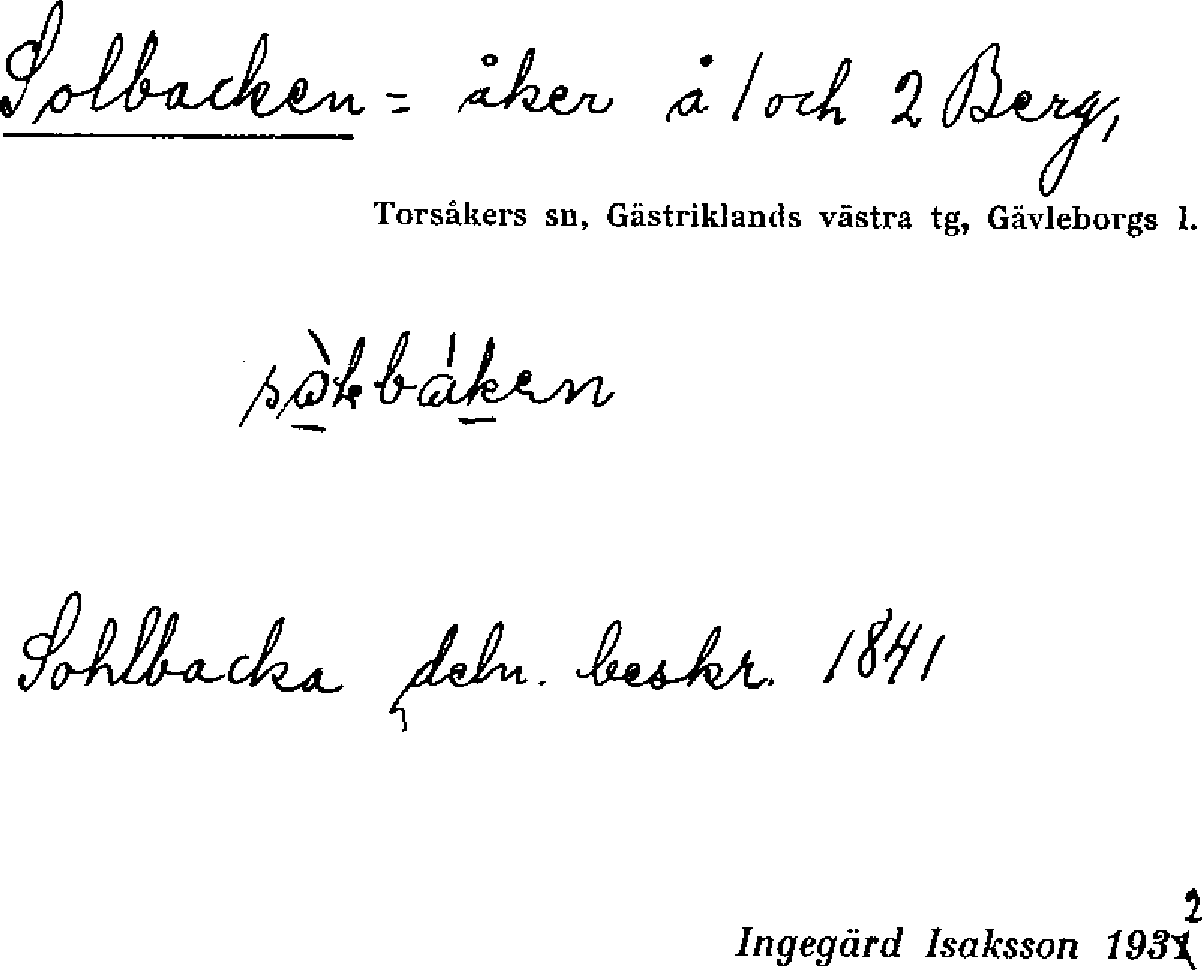 Solbacken = åker å 1 och 2 Berg,
Torsåkers sn, Gästriklands västra tg, Gävleborgs l.
Sohlbacka deln. beskr. 1841
Ingegärd Isaksson 1932